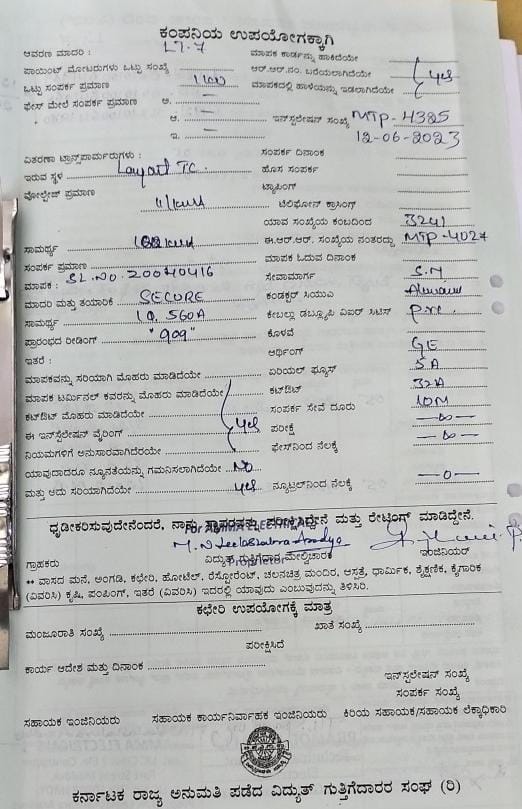 ಕಂಪನಿಯ ಉಪಯೋಗಕ್ಕಾಗಿ
ಆವರಣ ಮಾದರಿ : LT-7 ಮಾಪಕ ಕಾರ್ಡನ್ನು ಹಾಕಿದೆಯೇ
ಪಾಯಿಂಟ್ ಮೋಟರುಗಳು ಒಟ್ಟು ಸಂಖ್ಯೆ ಆರ್.ಆರ್.ನಂ. ಬರೆಯಲಾಗಿದೆಯೇ Yes
ಒಟ್ಟು ಸಂಪರ್ಕ ಪ್ರಮಾಣ ಮಾಪಕದಲ್ಲಿ ಹಾಳೆಯನ್ನು ಇಡಲಾಗಿದೆಯೇ
ಫೇಸ್ ಮೇಲೆ ಸಂಪರ್ಕ ಪ್ರಮಾಣ ಅ. —
ಆ. — ಇನ್‌ಸ್ಟಲೇಷನ್ ಸಂಖ್ಯೆ MTP-4325
ಇ. — 12-06-2023
ವಿತರಣಾ ಟ್ರಾನ್ಸ್‌ಪಾರ್ಮರುಗಳು : ಸಂಪರ್ಕ ದಿನಾಂಕ
ಇರುವ ಸ್ಥಳ Layout TC. ಹೊಸ ಸಂಪರ್ಕ
ವೋಲ್ಟೇಜ್ ಪ್ರಮಾಣ ಟ್ಯಾಪಿಂಗ್
ಟೆಲಿಫೋನ್ ಕ್ರಾಸಿಂಗ್
ಯಾವ ಸಂಖ್ಯೆಯ ಕಂಬದಿಂದ 3241
ಸಾಮರ್ಥ್ಯ ಈ.ಆರ್.ಆರ್. ಸಂಖ್ಯೆಯ ನಂತರದ್ದು MTP-4027
ಸಂಪರ್ಕ ಪ್ರಮಾಣ ಮಾಪಕ ಓದುವ ದಿನಾಂಕ
ಮಾಪಕ : SL.NO. 20040416 ಸೇವಾಮಾರ್ಗ
ಮಾದರಿ ಮತ್ತು ತಯಾರಿಕೆ SECURE ಕಂಡಕ್ಟರ್ ಸಿಯುವಿ
ಸಾಮರ್ಥ್ಯ ಕೇಬಲ್ಲು ಡಬ್ಲ್ಯೂಪಿ ವಿಐರ್ ಸಿಟಿಸ್
ಪ್ರಾರಂಭದ ರೀಡಿಂಗ್ "909" ಕೊಳವೆ
ಇತರೆ : ಆರ್ಥಿಂಗ್ GE
ಮಾಪಕವನ್ನು ಸರಿಯಾಗಿ ಮೊಹರು ಮಾಡಿದೆಯೇ ಏರಿಯಲ್ ಫ್ಯೂಸ್ 5A
ಮಾಪಕ ಟರ್ಮಿನಲ್ ಕವರನ್ನು ಮೊಹರು ಮಾಡಿದೆಯೇ ಕಟ್‌ಔಟ್ 32A
ಕಟ್‌ಔಟ್ ಮೊಹರು ಮಾಡಿದೆಯೇ ಸಂಪರ್ಕ ಸೇವೆ ದೂರು 10M
ಈ ಇನ್‌ಸ್ಟಲೇಷನ್ ವೈರಿಂಗ್ Yes ಪರೀಕ್ಷೆ
ನಿಯಮಗಳಿಗೆ ಅನುಸಾರವಾಗಿದೆಯೇ ಫೇಸ್‌ನಿಂದ ನೆಲಕ್ಕೆ
ಯಾವುದಾದರೂ ನ್ಯೂನತೆಯನ್ನು ಗಮನಿಸಲಾಗಿದೆಯೇ NO
ಮತ್ತು ಅದು ಸರಿಯಾಗಿದೆಯೇ Yes ನ್ಯೂಟ್ರಲ್‌ನಿಂದ ನೆಲಕ್ಕೆ —0—
ಧೃಡೀಕರಿಸುವುದೇನೆಂದರೆ, ನಾನು ಸ್ಥಾವರವನ್ನು ಪರೀಕ್ಷಿಸಿದ್ದೇನೆ ಮತ್ತು ರೇಟಿಂಗ್ ಮಾಡಿದ್ದೇನೆ.
ಗ್ರಾಹಕರು ವಿದ್ಯುತ್ ಗುತ್ತಿಗೆದಾರ ಮೇಲ್ವಿಚಾರಕ ಇಂಜಿನಿಯರ್
Proprietor
** ವಾಸದ ಮನೆ, ಅಂಗಡಿ, ಕಛೇರಿ, ಹೋಟೆಲ್, ರೆಸ್ಟೋರೆಂಟ್, ಚಲನಚಿತ್ರ ಮಂದಿರ, ಆಸ್ಪತ್ರೆ, ಧಾರ್ಮಿಕ, ಶೈಕ್ಷಣಿಕ, ಕೈಗಾರಿಕ
(ವಿವರಿಸಿ) ಕೃಷಿ, ಪಂಪಿಂಗ್, ಇತರೆ (ವಿವರಿಸಿ) ಇದರಲ್ಲಿ ಯಾವುದು ಎಂಬುವುದನ್ನು ತಿಳಿಸಿರಿ.
ಕಛೇರಿ ಉಪಯೋಗಕ್ಕೆ ಮಾತ್ರ
ಮಂಜೂರಾತಿ ಸಂಖ್ಯೆ ಖಾತೆ ಸಂಖ್ಯೆ
ಪರೀಕ್ಷಿಸಿದೆ
ಕಾರ್ಯ ಆದೇಶ ಮತ್ತು ದಿನಾಂಕ
ಇನ್‌ಸ್ಟಲೇಷನ್ ಸಂಖ್ಯೆ
ಸಂಪರ್ಕ ಸಂಖ್ಯೆ
ಸಹಾಯಕ ಇಂಜಿನಿಯರು ಸಹಾಯಕ ಕಾರ್ಯನಿರ್ವಾಹಕ ಇಂಜಿನಿಯರು ಕಿರಿಯ ಸಹಾಯಕ/ಸಹಾಯಕ ಲೆಕ್ಕಾಧಿಕಾರಿ
ಕರ್ನಾಟಕ ರಾಜ್ಯ ಅನುಮತಿ ಪಡೆದ ವಿದ್ಯುತ್ ಗುತ್ತಿಗೆದಾರರ ಸಂಘ (ರಿ)